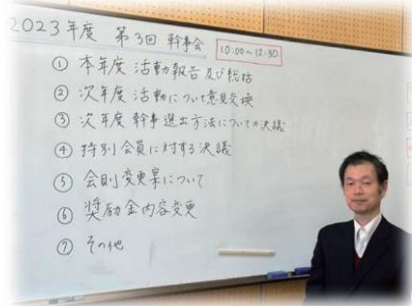 2023年度 第3回 幹事会 10:00~12:30
① 本年度活動報告及び総括
② 次年度活動について意見交換
③ 次年度幹事選出方法についての決議
④ 特別会員に対する決議
⑤ 会則変更案について
⑥ 奨励金内容変更
⑦ その他